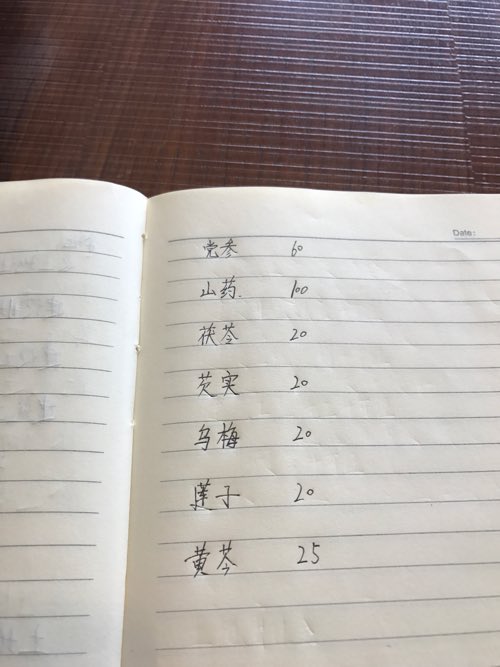 Date:
党参 60
山药. 100
茯苓 20
芡实 20
乌梅 20
莲子 20
黄芩 25